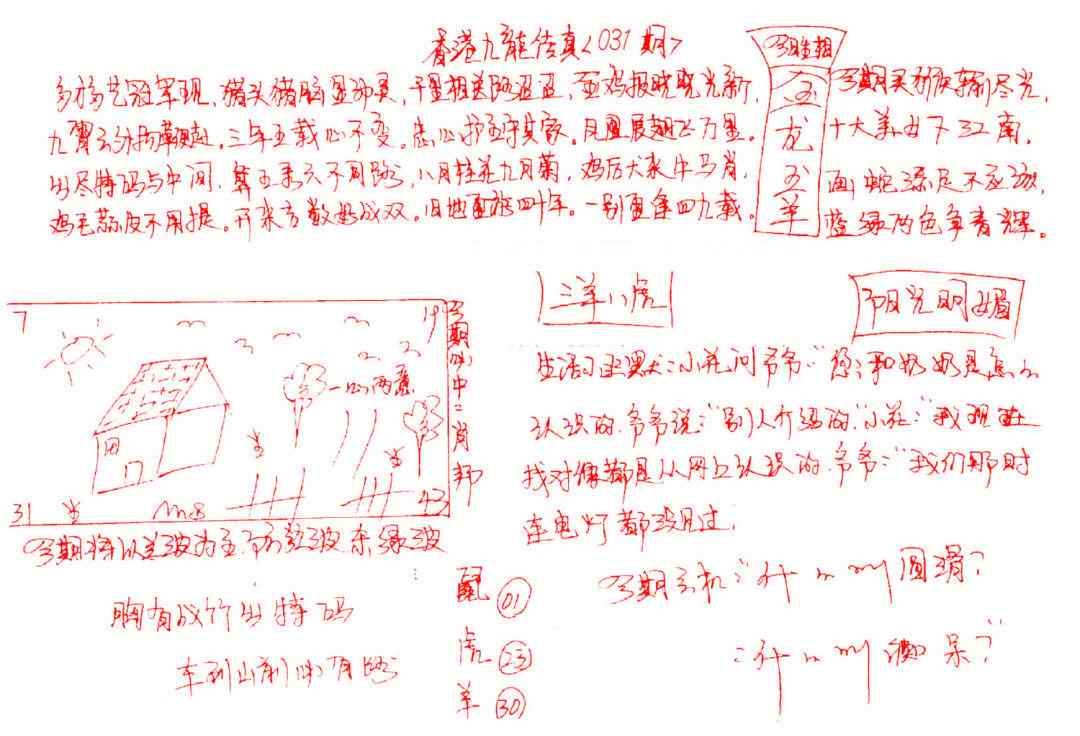 香港九龙传真〈031期〉
多才多艺冠军现,猪头猪脑显神灵,千里相送路迢迢,金鸡报晓晓光新,
九霄云外扬鞭赶。三年五载心不变。忠心护主守其家。凤凰展翅飞万里。
出尽特码与中间,算五乘六不同路,八月桂花九月菊,鸡后犬来牛马肖,
鸡毛蒜皮不用提。开来吉数成双。旧地重游四十年。一别重逢四九载。
今期生相
龙
羊
今期买
十大美女下江南。
画蛇添足不
蓝绿两色争春辉。
三羊八虎
阳光明媚
7
19
一心两意
17
31
43
今期必中二肖
今期特以兰波为主 防红波 杀绿波
胸有成竹出特码
车到山前必有路
鼠 01
虎 23
羊 30
生活幽默:小花问爷爷:"您和奶奶是怎么
认识的.爷爷说:"别人介绍的"小花:"我现在
找对像都是从网上认识的.爷爷:"我们那时
连电灯都没见过.
今期玄机:"什么叫圆滑?
:什么叫 呆?"